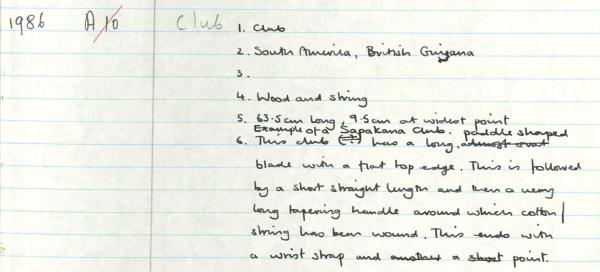 1986 A10 Club 1. Club
2. South America, British Guyana
3.
4. Wood and string
5. 63.5cm long, 9.5cm at widest point
Example of a Sapakana Club. paddle shaped
6. This club (::) has a long, almost oval
blade with a flat top edge. This is followed
by a short straight length and then a very
long tapering handle around which cotton/
string has been wound. This ends with
a wrist strap and another a short point.